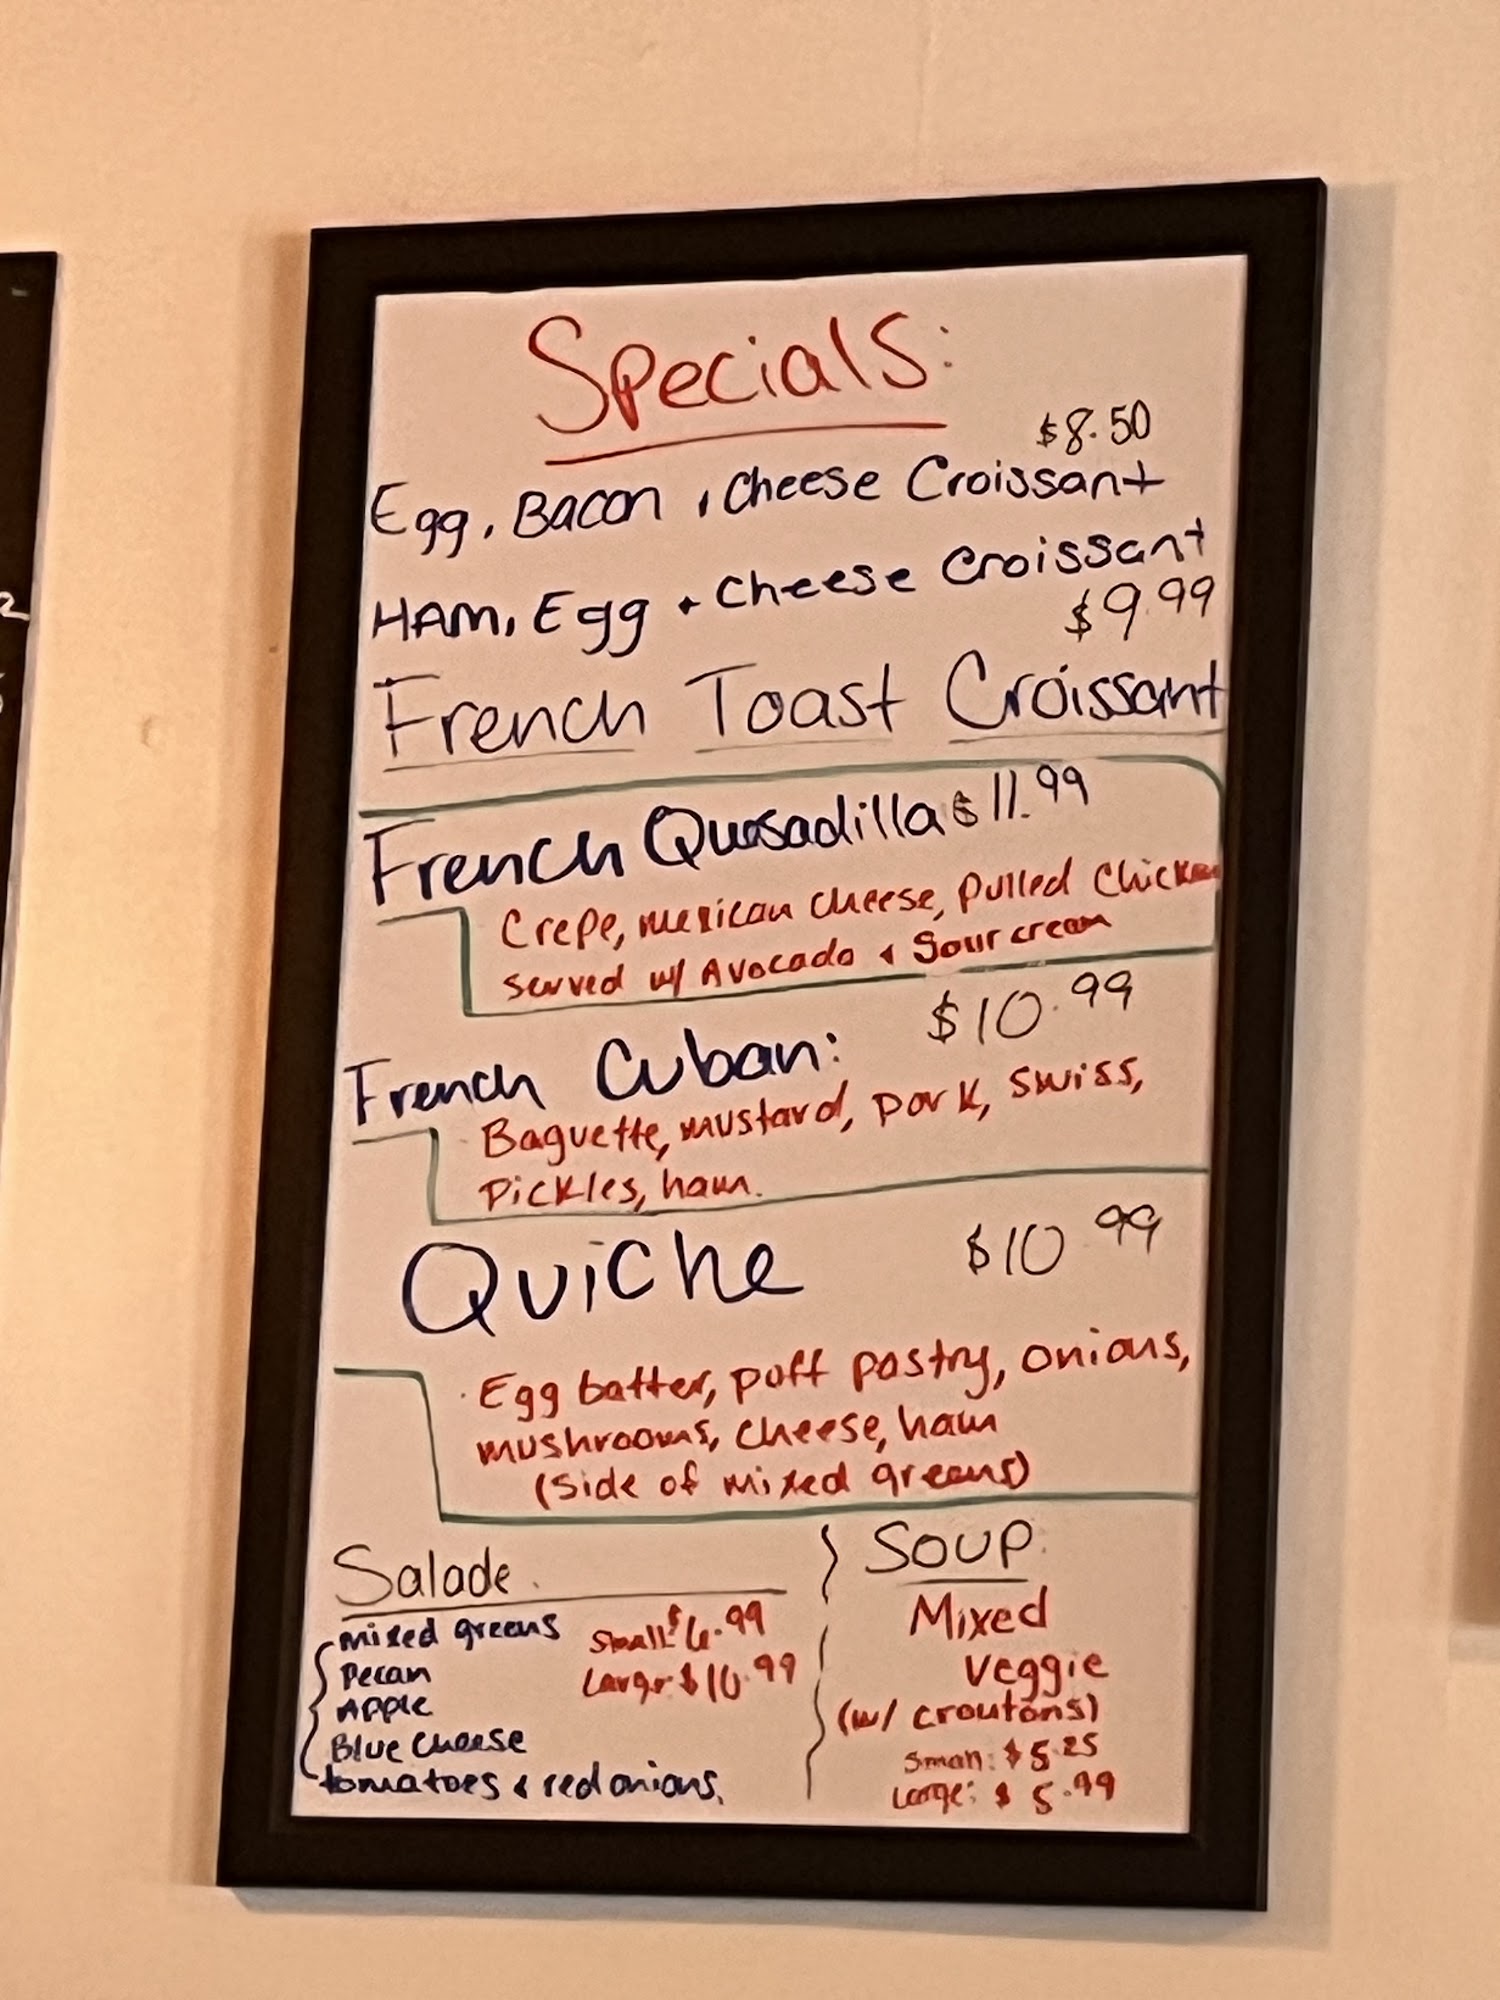 Specials:
$8.50
Egg, Bacon + Cheese Croissant
HAM, Egg + Cheese Croissant
$9.99
French Toast Croissant
French Quesadilla $11.99
Crepe, mexican cheese, pulled chicken
served w/ Avocado & Sour cream
$10.99
French Cuban:
Baguette, mustard, pork, swiss,
pickles, ham.
Quiche $10.99
Egg batter, puff pastry, onions,
mushrooms, cheese, ham
(side of mixed greens)
Salade
mixed greens small: $6.99
Pecan Large: $10.99
Apple
Blue Cheese
tomatoes & red onions.
SOUP:
Mixed
veggie
(w/ croutons)
Small: $5.25
Large: $5.99